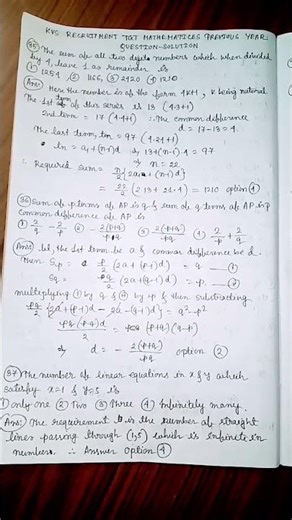 KVS RECRUITMENT TGT MATHEMATICES PREVIOUS YEAR
QUESTION-SOLUTION
(35) The sum of all two digits numbers which when divided
by 4, leave 1 as remainder is
(1) 1251 (2) 1166, (3) 2120 (4) 1210
(Ans:) Here the number is of the form 4K+1, K being natural
The 1st term of this series is 13 (4.3+1)
2nd term = 17 (4.4+1) ∴ The common difference
d = 17-13 = 4.
The last term, tm = 97 (4.24+1)
∴ tn = a+(n-1)d ⇒ 13+(n-1).4 = 97
⇒ n = 22
∴ Required sum = n/2 {2a + (n-1)d}
= 22/2 (2.13 + 21.4) = 1210 option (4)
(36) Sum of p terms of AP is q & sum of q terms of AP is p
Common difference of AP is
(2) -2(p+q)/pq (3) 2(p+q)/pq (4) 2/p + 2/q
(Ans:) Let, the 1st term be a & common difference be d.
Then Sp = p/2 (2a + (p-1)d) = q —(1)
Sq = (2a + (q-1)d) = p. —(2)
multiplying (1) by q & (2) by p & then subtracting.
pq/2 {2a + (p-1)d - 2a - (q-1)d} = q² - p²
pq(p-q)d/2 = (p+q)(q-p)
⇒ d = - 2(p+q)/pq option (2)
(37) The number of linear equations in x & y which
satisfy x=1 & y=5 is
(1) only one (2) Two (3) Three (4) Infinitely many.
(Ans:) The requirement is the number of straight
lines passing through (1,5) which is infinite in
numbers. ∴ Answer option (4)